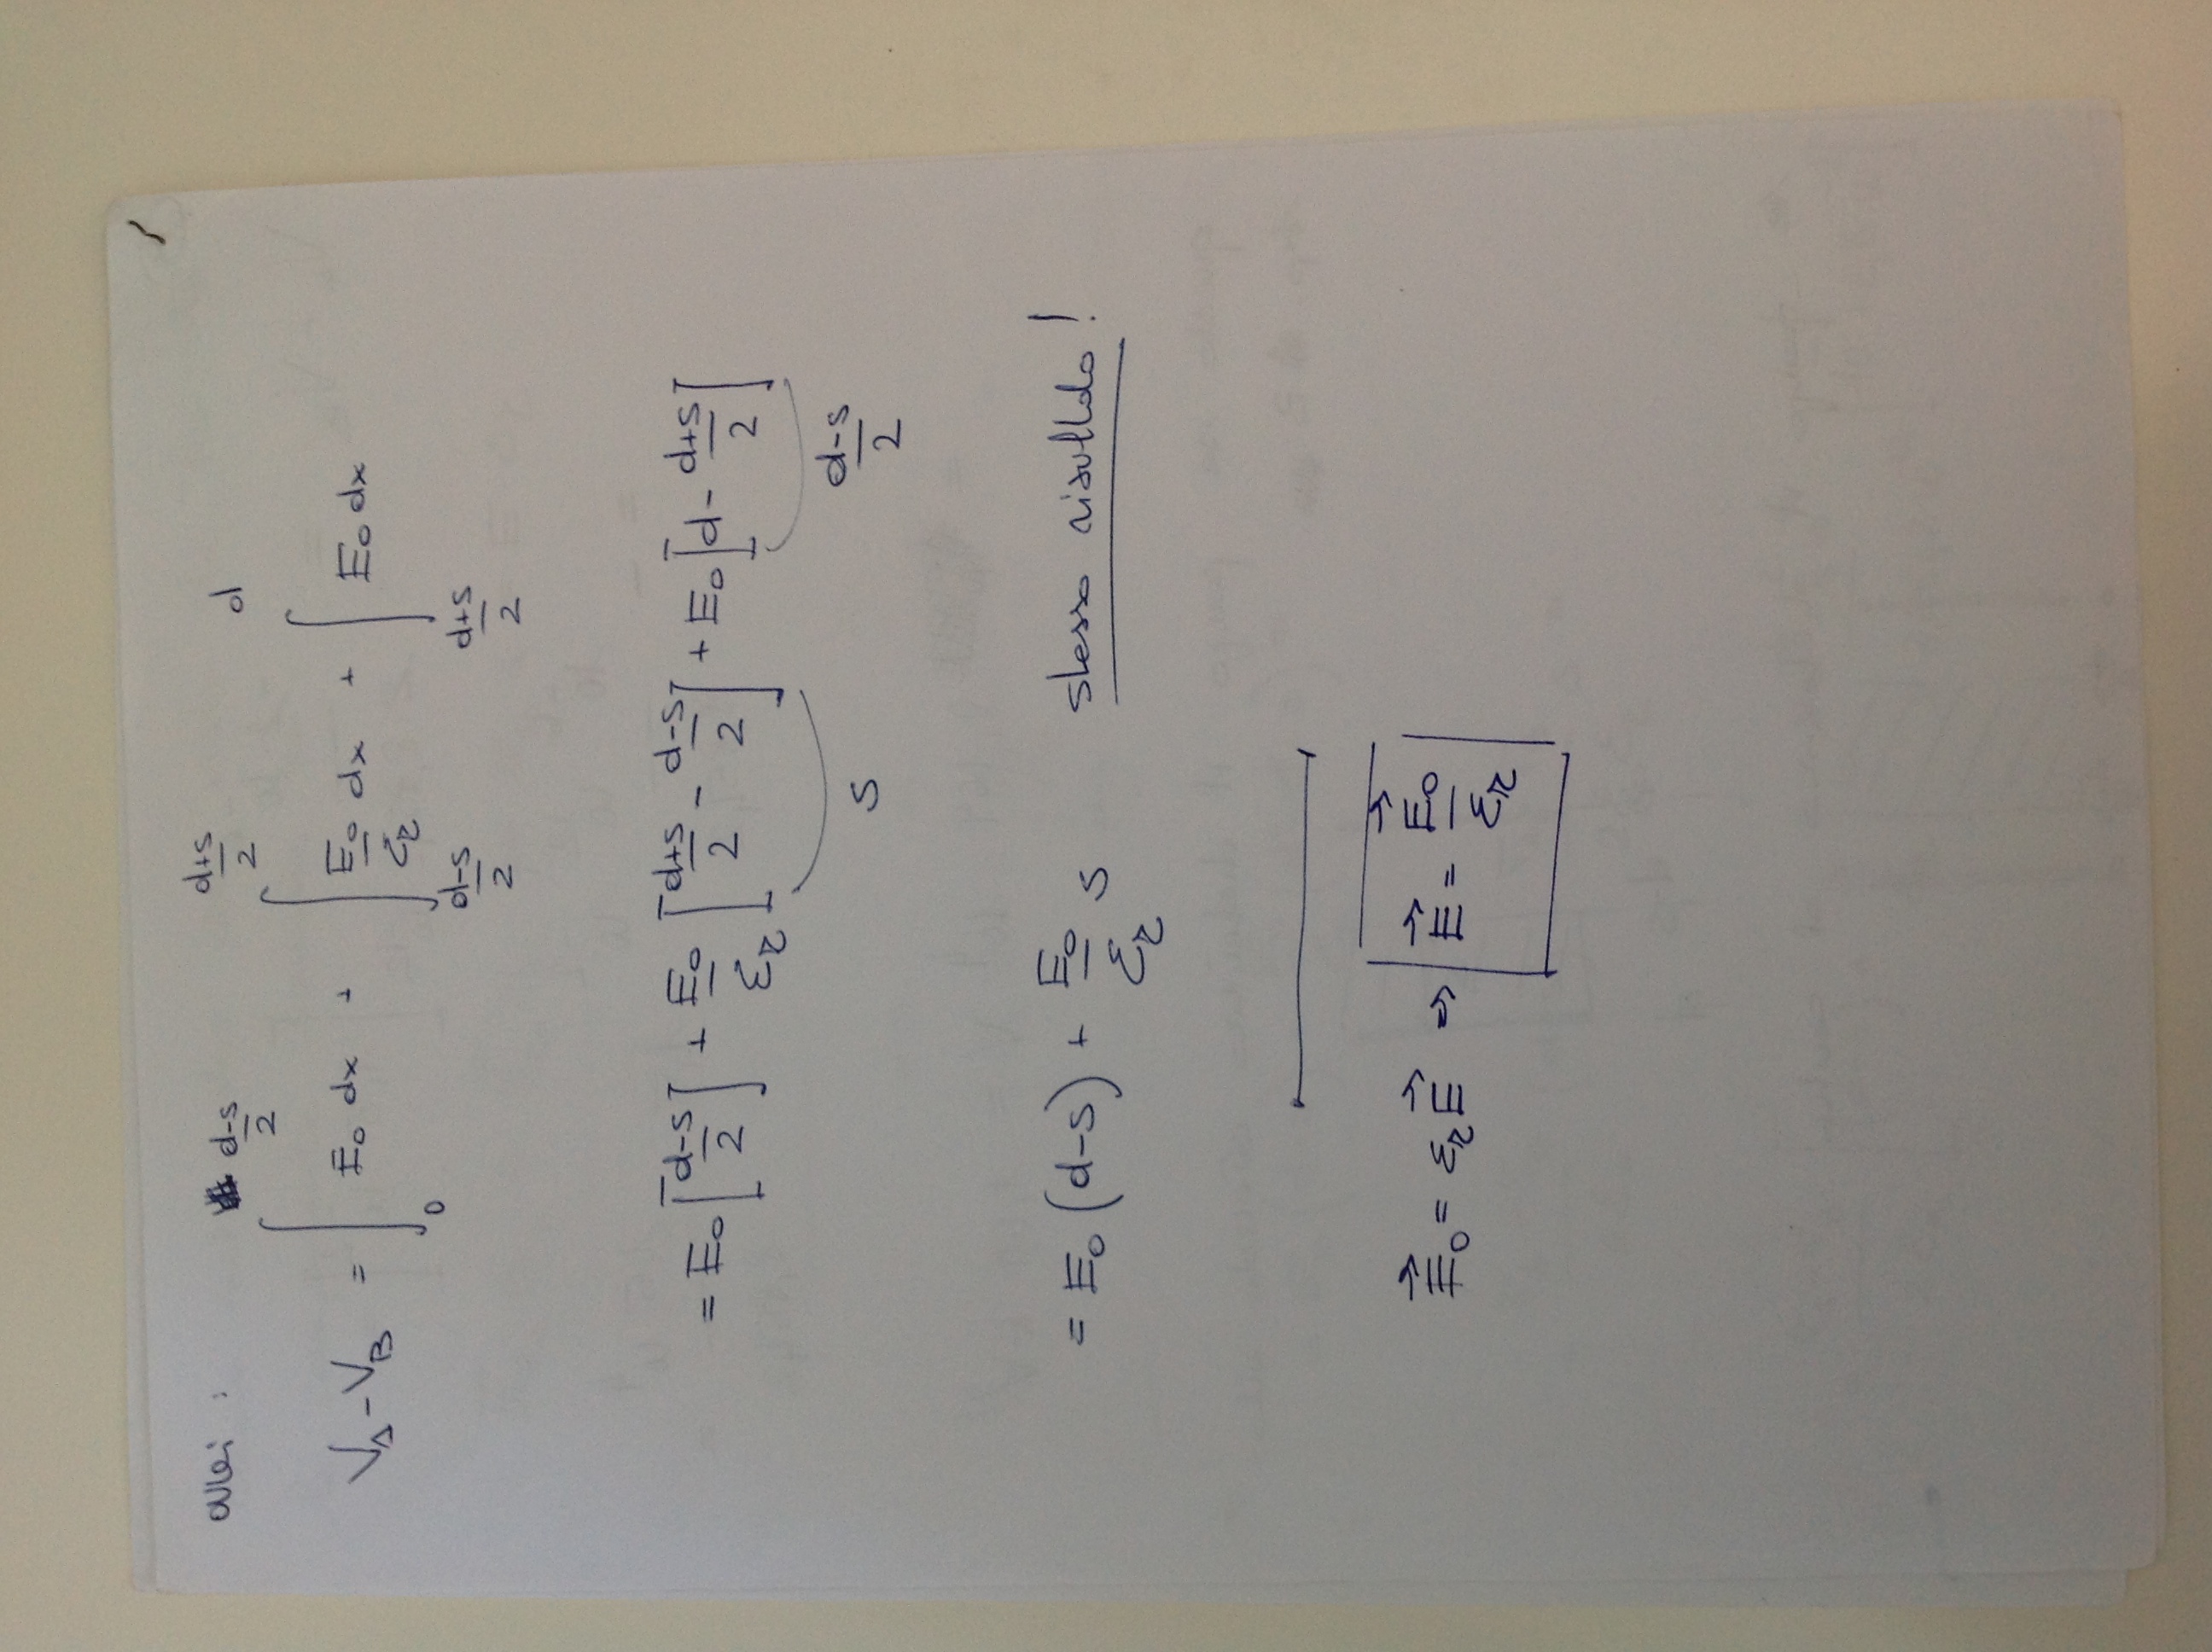 :
V_A - V_B = ∫_0^{\frac{d-s}{2}} E_0 dx + ∫_{\frac{d-s}{2}}^{\frac{d+s}{2}} \frac{E_0}{ε_r} dx + ∫_{\frac{d+s}{2}}^{d} E_0 dx
= E_0 [\frac{d-s}{2}] + \frac{E_0}{ε_r} [\frac{d+s}{2} - \frac{d-s}{2}] + E_0 [d - \frac{d+s}{2}]
s \frac{d-s}{2}
= E_0 (d-s) + \frac{E_0}{ε_r} s stesso risultato!
\vec{E}_0 = ε_r \vec{E} ⇒ \vec{E} = \frac{\vec{E}_0}{ε_r}